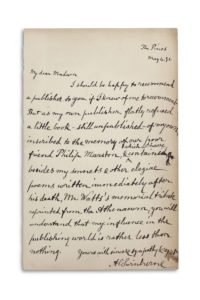 The Pines
May 6.
My dear Madam
I should be happy to recommend
a publisher to you if I knew of one to recommend
But as my own publisher flatly refused
a little book - still unpublished - of
inscribed to the memory of our poor
friend Philip Marston, & containing
besides my sonnets & other elegiac
poems written immediately after
his death, Mr. Watts's memorial tribute
reprinted from the Athenaeum, you will
understand that my influence in the
publishing world is rather less than
nothing.
Yours with sincere sympathy & regret
A. C. Swinburne